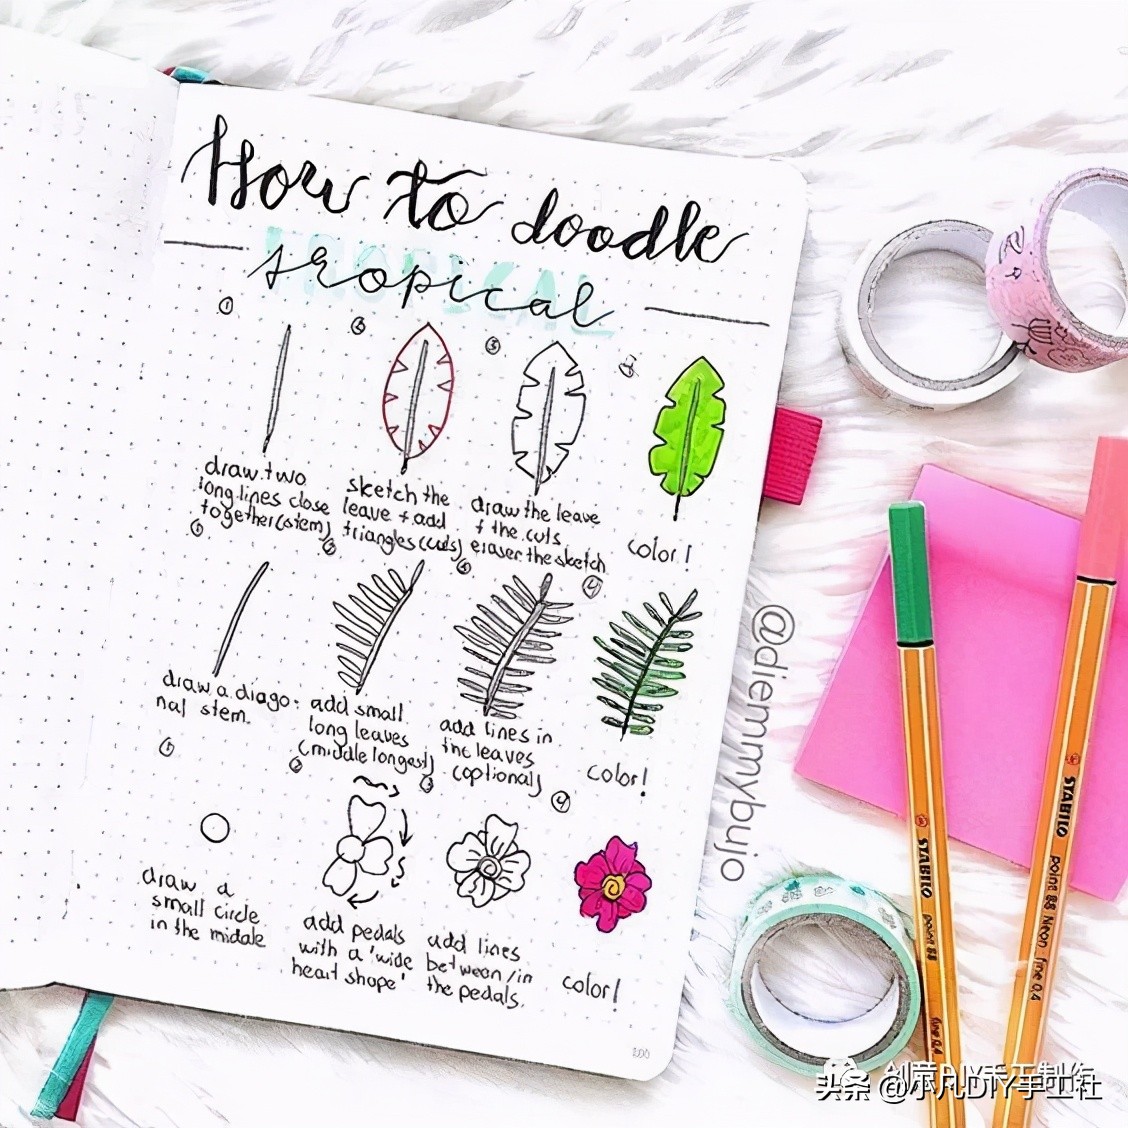 How to doodle
TROPICAL
tropical
1
2
3
4
draw two
long lines close
together (stem)
sketch the
leave + add
triangles (cuts)
draw the leave
+ the cuts
eraser the sketch
color!
1
2
3
4
draw a diago-
nal stem.
add small
long leaves
(middle longest)
add lines in
the leaves
(optional)
color!
1
2
3
4
draw a
small circle
in the middle
add pedals
with a 'wide
heart shape'
add lines
between/in
the pedals.
color!
200
@diemmybujo
STABILO point 88 fine 0,4
STABILO point 88 Neon fine 0,4
头条 @小凡DIY手工社